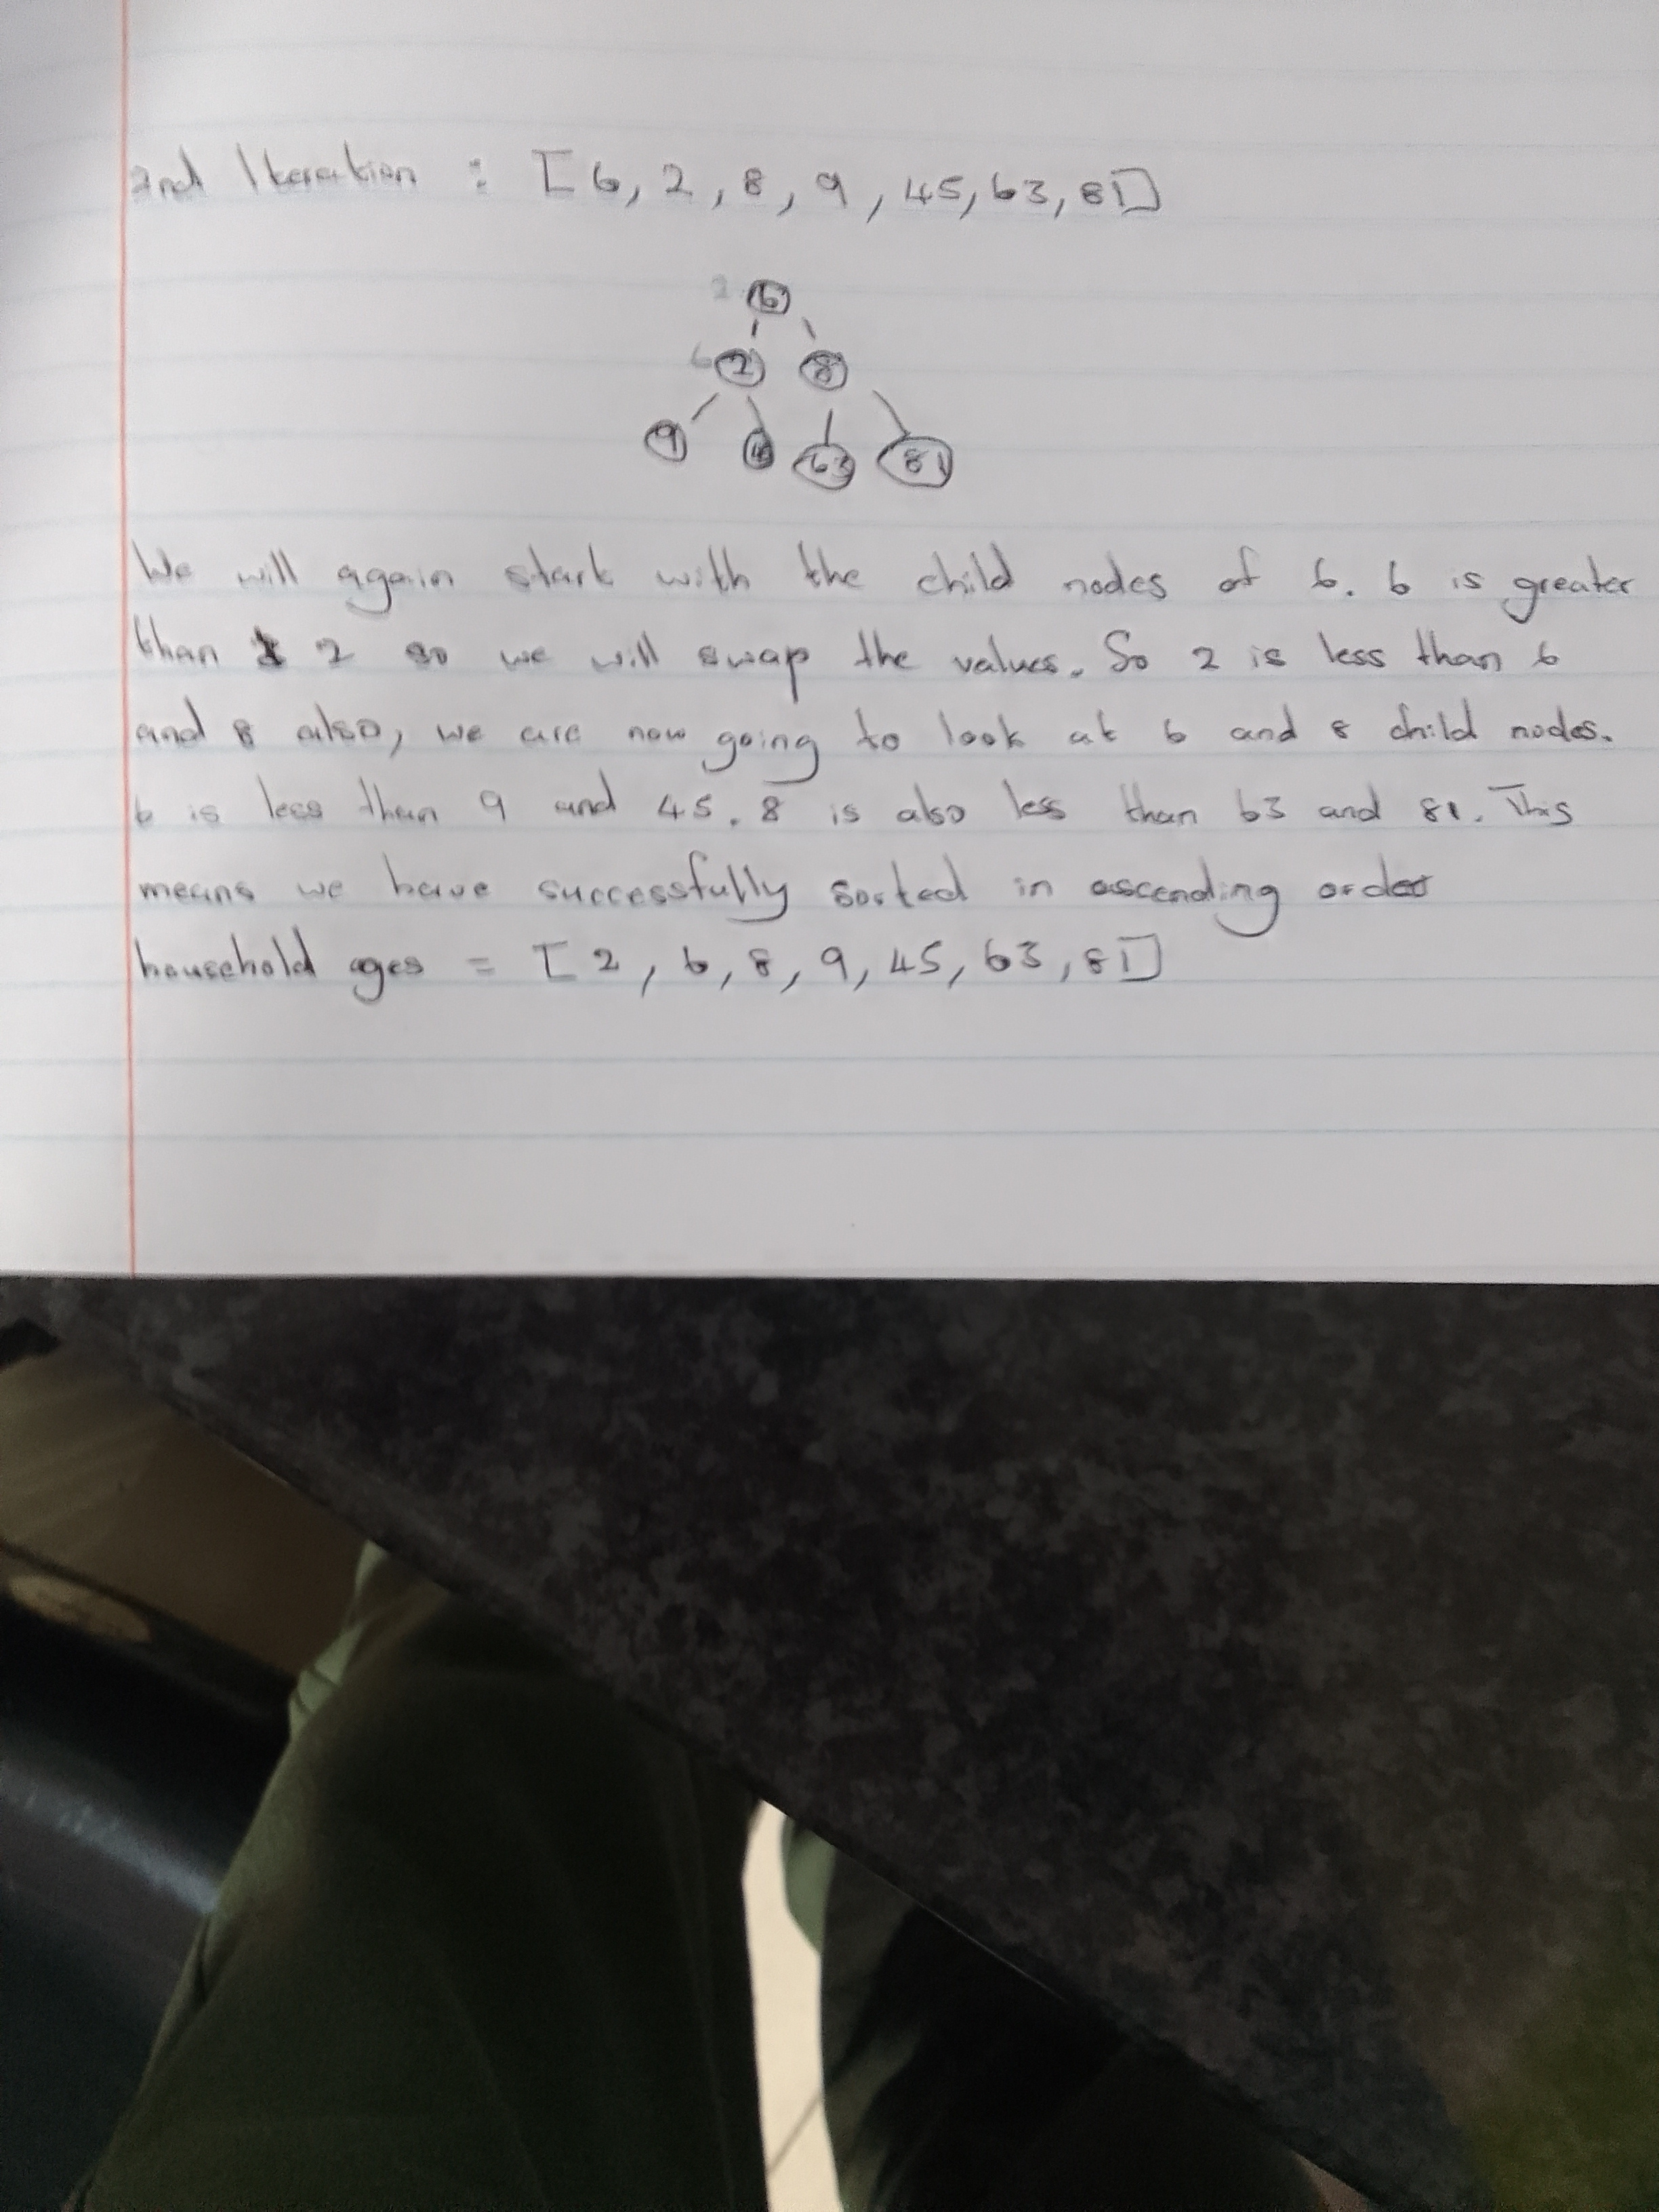 2nd Iteration : [6, 2, 8, 9, 45, 63, 81]
2 6
6 2 8
9 45 63 81
We will again start with the child nodes of 6. 6 is greater
than 2 so we will swap the values. So 2 is less than 6
and 8 also, we are now going to look at 6 and 8 child nodes.
6 is less than 9 and 45. 8 is also less than 63 and 81. This
means we have successfully sorted in ascending order
household ages = [2, 6, 8, 9, 45, 63, 81]